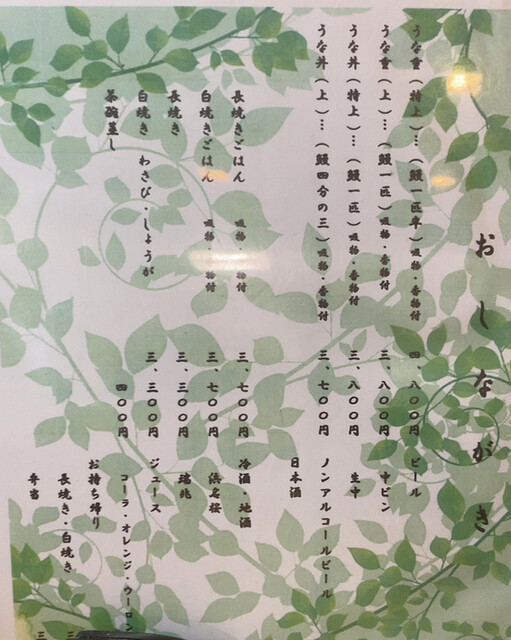 おしながき
うな重(特上)…(鰻一匹半)吸物・香物付 四、八〇〇円
うな重(上)…(鰻一匹)吸物・香物付 三、八〇〇円
うな丼(特上)…(鰻一匹)吸物・香物付 三、八〇〇円
うな丼(上)…(鰻四分の三)吸物・香物付 三、七〇〇円
長焼きごはん 吸物・香物付 三、七〇〇円
白焼きごはん 吸物・香物付 三、七〇〇円
長焼き 三、三〇〇円
白焼き わさび・しょうが 三、三〇〇円
茶碗蒸し 四〇〇円
ビール
中ビン
生中
ノンアルコールビール
日本酒
冷酒・地酒
浜名桜
瑞兆
ジュース
コーラ・オレンジ・ウーロン
お持ち帰り
長焼き・白焼き 三
弁当 三